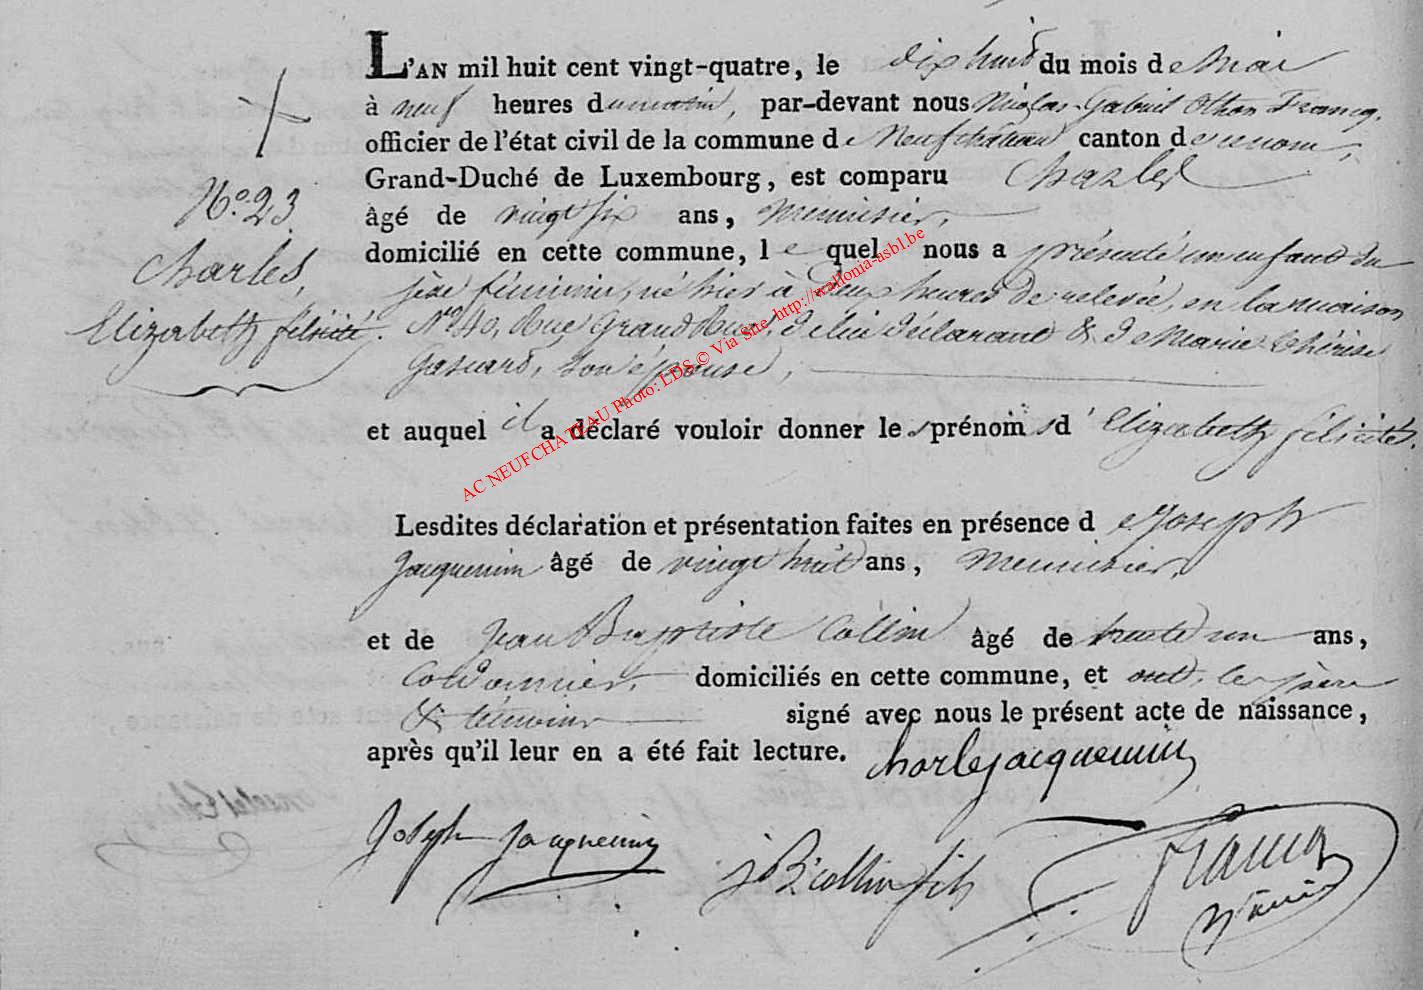 L'AN mil huit cent vingt-quatre, le dix huit du mois de Mai
à neuf heures du matin, par-devant nous Nicolas Gabriel Othon Francq,
officier de l'état civil de la commune de Neufchateau canton de ce nom,
Grand-Duché de Luxembourg, est comparu Charles
No. 23.
âgé de vingt six ans, Menuisier,
Charles,
domicilié en cette commune, le quel nous a présenté un enfant du
sèxe féminin, né hier à deux heures de relevée, en la maison
Elizabeth félicité.
No. 40, Rue Grand Rue, de lui déclarant & de Marie Thérèse
son épouse,
et auquel il a déclaré vouloir donner les prénoms d'Elizabeth félicité.
Lesdites déclaration et présentation faites en présence de Joseph
Jacquemin âgé de vingt huit ans, Menuisier,
et de Jean Baptiste Collin âgé de trente un ans,
Cordonnier, domiciliés en cette commune, et ont, le père
& témoins signé avec nous le présent acte de naissance,
après qu'il leur en a été fait lecture. Charles jacquemin
Joseph Jacquemin
J B Collin fils
Francq
AC NEUFCHATEAU Photo: LDS © Via Site http://wallonia-asbl.be